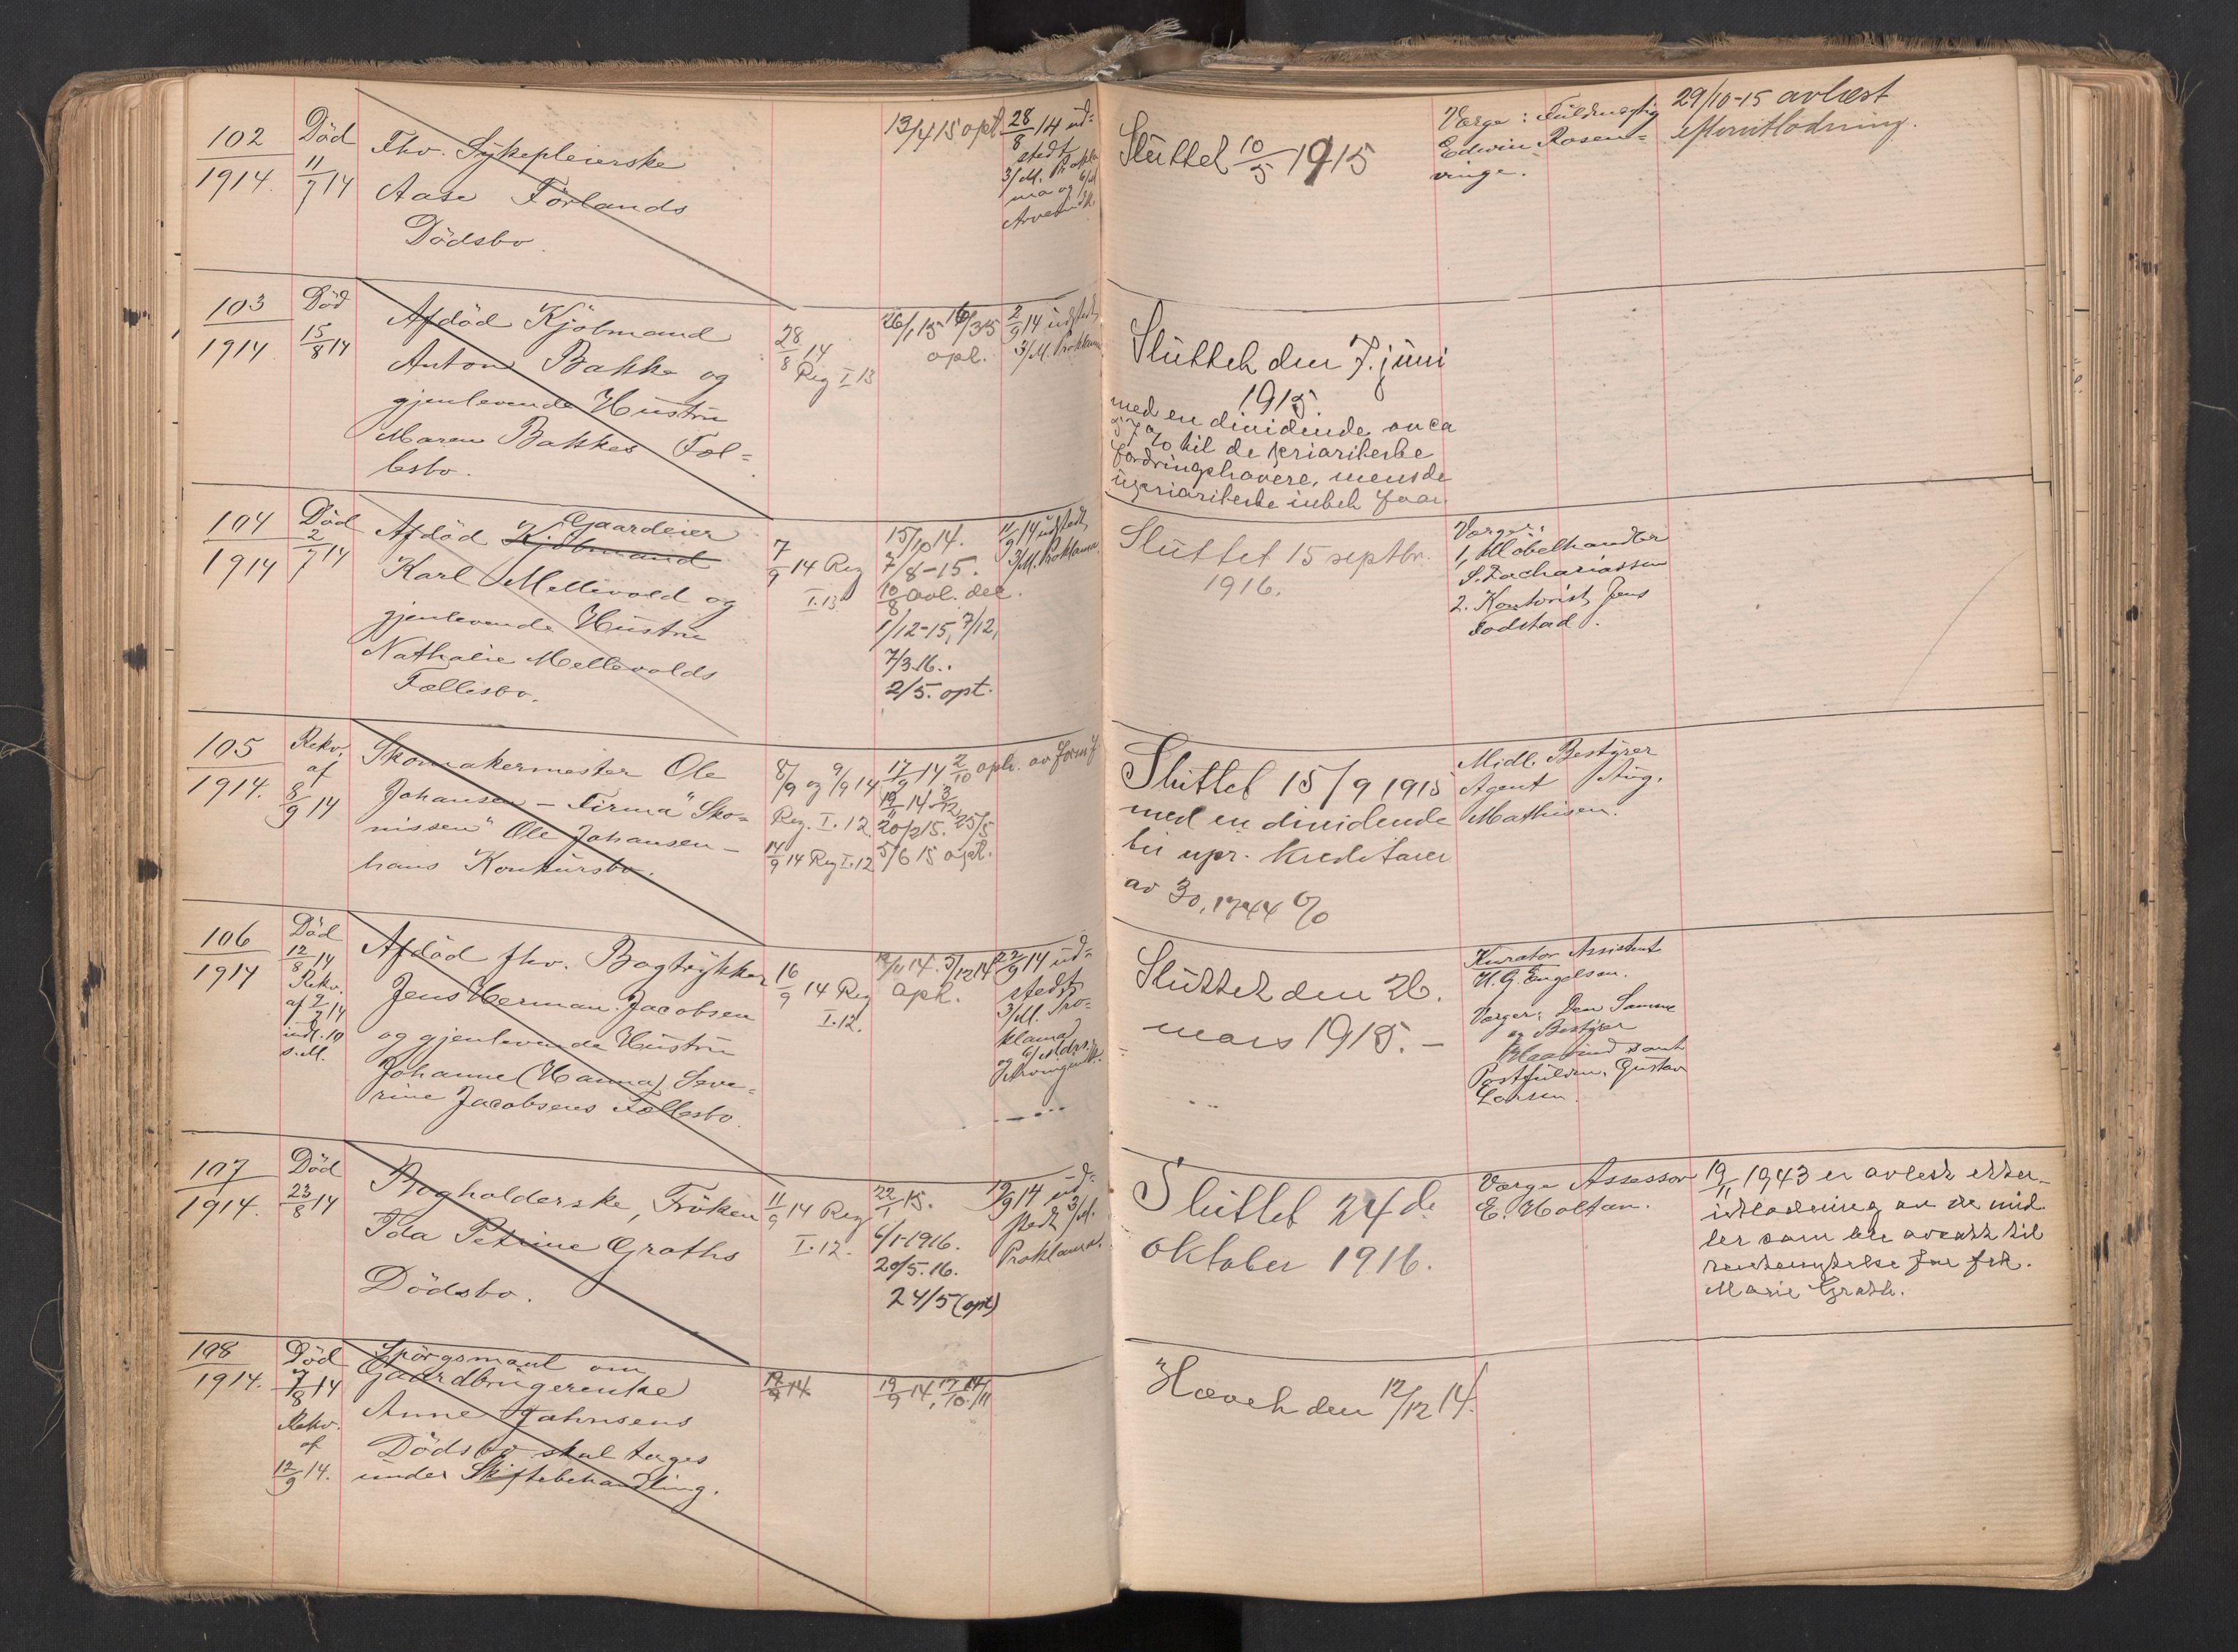 102
1914.
Död
11/7 14
Fhv. Sykepleierske
Aase Förlands
Dödsbo.
13/4 15 opt.
28/8 14 ud=
stedt
3/M. Prokla
ma og 6/M
Sluttet 10/5 1915
Værge: Fuldmegtig
Edwin Rosen=
vinge.
29/10-15 avlæst
efterutlodning.
103
1914
Död
15/8 14
Afdöd Kjöbmand
Anton Bakke og
gjenlevende Hustru
Maren Bakkes Fæl=
lesbo.
28/8 14
Reg I.13
26/1 15 16/3 15
opl.
2/9 14 udstedt
3/M. Proklama
Sluttet den 7. juni
1915.
med en dividende av ca
57 % til de prioriterte
fordringshavere, mens de
uprioriterte intet faar.
104
1914
Död
2/7 14
Afdöd Gaardeier
Kjöbmand
Karl Mellevold og
gjenlevende Hustru
Nathalie Mellevolds
Fællesbo.
7/9 14 Reg
I.13
15/10 14.
7/8-15.
10/8 avl. del.
1/12-15, 7/12,
7/3.16.
2/5. opt.
11/9 14 udstedt
3/M. Proklama.
Sluttet 15 septbr.
1916.
Værger:
1, Möbelhandler
S. Zachariassen
2. Kontorist Jens
Fodstad.
105
1914.
Rekv.
af
8/9 14
Skomakermester Ole
Johansen – Firma "Sko=
nissen" Ole Johansen –
hans Konkursbo.
8/9 og 9/9 14
Reg. I.12
14/9 14 Reg I.12
17/9 14 2/10 opt. av form.f
19/11 14 3/12
20/2 15. 25/5
5/6 15 opt.
Sluttet 15/9 1915
med en dividende
til upr. kreditorer
av 30,1744 %
Midl. Bestyrer
Agent Aug.
Mathisen.
106
1914
Död
12/8 14
Rekv.
af 9/9 14
indl. 10
s.M.
Afdöd fhv. Bogtrykker
Jens Herman Jacobsen
og gjenlevende Hustru
Johanne (Hanna) Seve=
rine Jacobsens Fællesbo.
16/9 14 Reg
I.12.
12/11 14. 3/12 14
opt.
22/9 14 ud=
stedt
3/M. Pro=
klama
Sluttet den 26.
mars 1915. –
Kurator Assistent
H. G. Engelsen.
Værger: Den Samme
og Bestyrer
Haavind samt
Postfuldm. Gustav
Larsen.
107
1914.
Död
23/8 14
Bogholderske, Fröken
Ida Petrine Graths
Dödsbo.
11/9 14 Reg
I.12.
22/1 15.
6/1-1916.
20/5.16.
24/5 (opt)
19/9 14 ud=
stedt 3/M.
Proklama.
Sluttet 24de
oktober 1916.
Værge Assessor
E. Holtan.
19/11 1943 er avlest etter-
utlodning av de mid
ler som ble avsatt til
rentenytelse for frk.
Marie Grath.
108
1914.
Död
7/8 14
Rekv.
af
12/9 14.
Spörgsmaal om
Gaardbrugerenke
Anne Hahnsens
Dödsbo skal tages
under Skiftebehandling.
12/9 14.
19/9 14, 17/10. 14/11
Hævet den 12/12 14.